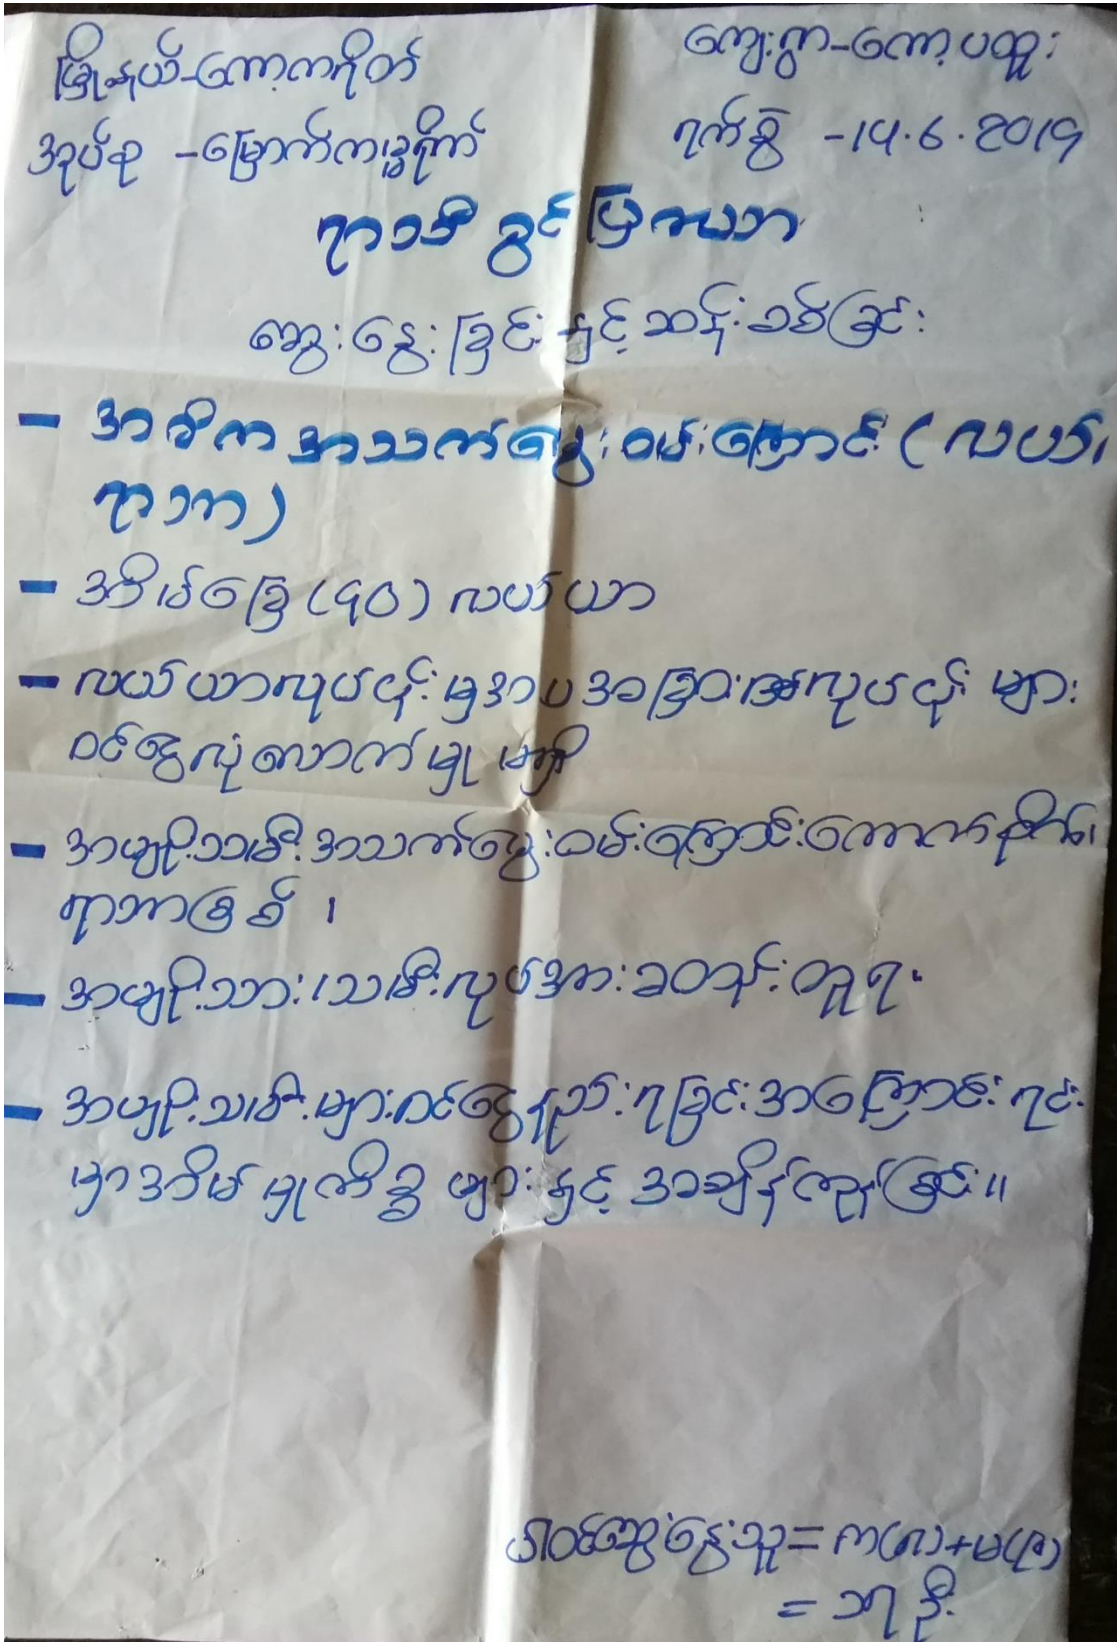 မြို့နယ်-ကော့ကရိတ်
ကျေးရွာ-ကော့ပထူး
အုပ်စု -မြောက်ကခွဲရိုက်
ရက်စွဲ -14.6.2019
ရာသီခွင်ပြကဒာ
ဆွေးနွေးခြင်းနှင့်ဆန်းစစ်ခြင်း
- အဓိကအသက်မွေးဝမ်းကြောင်း (လယ်၊
ရာဘာ)
- အိမ်ခြေ (၄၀) လယ်ယာ
- လယ်ယာလုပ်ငန်းမှအပအခြားလုပ်ငန်းများ
ဝင်ငွေလုံလောက်မှုမရှိ
- အမျိုးသမီးအသက်မွေးဝမ်းကြောင်းကောက်စိုက်၊
ရာဘာခြစ်၊
- အမျိုးသား၊သမီးလုပ်အားခတန်းတူရ။
- အမျိုးသမီးများဝင်ငွေနည်းရခြင်းအကြောင်းရင်း
မှာအိမ်မှုကိစ္စများနှင့်အချိန်ကုန်ခြင်း။
ပါဝင်ဆွေးနွေးသူ=
= ၁၅ ဦး